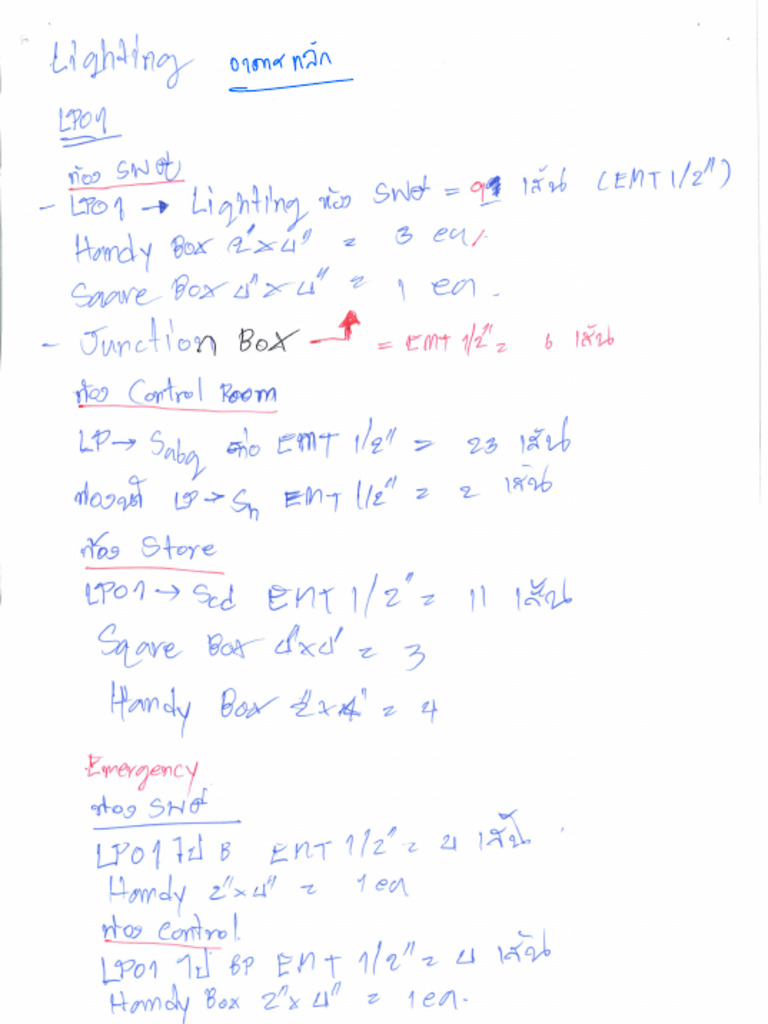 Lighting อาคารหลัก
LP01
ห้อง SWG
- LP01 → Lighting ห้อง SWG = 9 เส้น (EMT 1/2")
Handy Box 2"x4" = 3 ea
Sqare Box 4"x4" = 1 ea.
- Junction Box = EMT 1/2" = 6 เส้น
ห้อง Control Room
LP→ Sabq ท่อ EMT 1/2" = 23 เส้น
ห้องน้ำ LP→Sn EMT 1/2" = 2 เส้น
ห้อง Store
LP01→ Scd EMT 1/2" = 11 เส้น
Sqare Box 4"x4" = 3
Handy Box 2x4" = 4
Emergency
ห้อง SWG
LP01 ไป B EMT 1/2" = 4 เส้น
Handy 2"x4" = 1 ea
ห้อง Control
LP01 ไป BP EMT 1/2" = 4 เส้น
Handy Box 2"x4" = 1 ea.